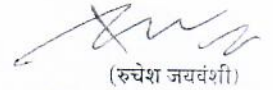 (रुचेश जयवंशी)